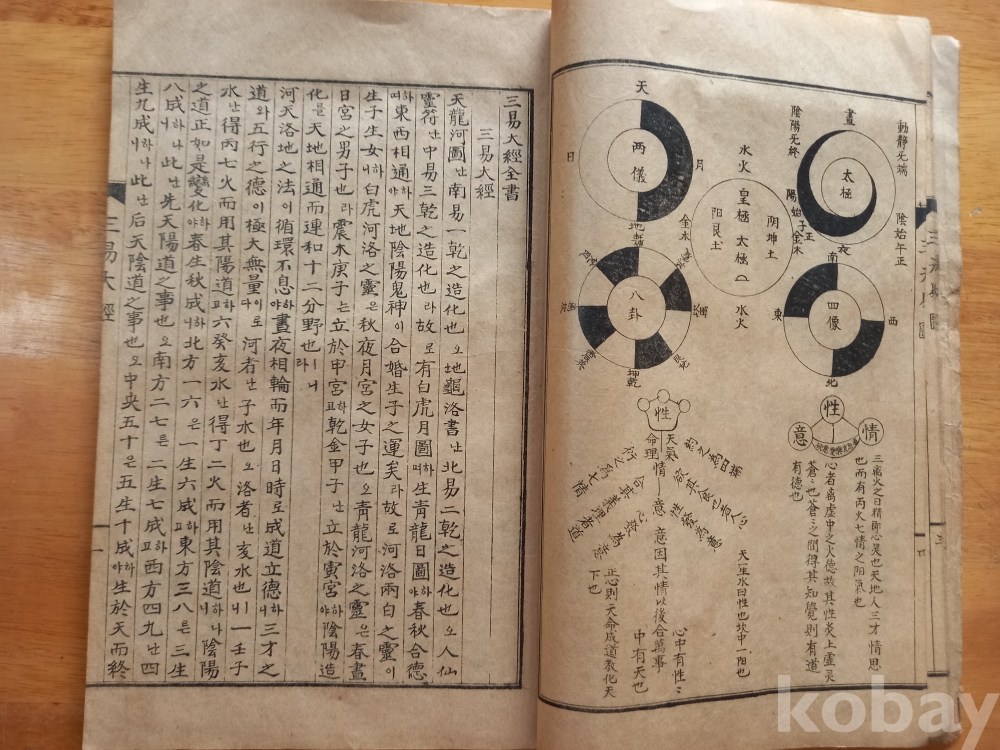 動静无端
陰始午正
晝
太極
夜
陰陽无終
陽始子正
天
两儀
地
日
月
水火
皇極太極
阴坤土
阳艮土
水火
金木
金木
南
四像
北
東
西
八卦
坤乾
性
情
意
三离火之日精即心灵也天地人三才情思
也而有丙火七情之阳氣也
心者离虛中之火德故其性炎上虛灵
蒼〻也蒼〻之間得其知覺則有道
有德也
性
天氣
命理
情
意
天一生水曰性也坎中一阳也
心中有性〻
中有天也
意因其情以後合萬事
正心則天命成道教化天
下也
三易大經全書
三易大經
天龍河圖난南易一乾之造化也오地龜洛書난北易二乾之造化也오人仙
靈符난中易三乾之造化也라故로有白虎月圖하며生青龍日圖하야春秋合德
하며東西相通하야天地陰陽鬼神이合婚生子之運矣라故로河洛兩白之靈이
生子生女하니白虎河洛之靈은秋夜月宮之女子也오青龍河洛之靈은春晝
日宮之男子也라震木庚子는立於甲宮하고乾金甲子난立於寅宮하야陰陽造
化를天地相通而連和十二分野也라니
河天洛地之法이循環不息하야晝夜相輪而年月日時로成道立德하니三才之
道와五行之德이極大無量이로다河者난子水也오洛者난亥水也니一壬子
水난得丙七火而用其陽道하고六癸亥水난得丁二火而用其陰道하나니陰陽
之道正如是變化하야春生秋成하니北方一六은一生六成하고東方三八든三生
八成하나니此난先天陽道之事也오南方二七든二生七成하고西方四九난四
生九成하나니此난后天陰道之事也오中央五十은五生十成하야生於天而終
三易大經
一
kobay